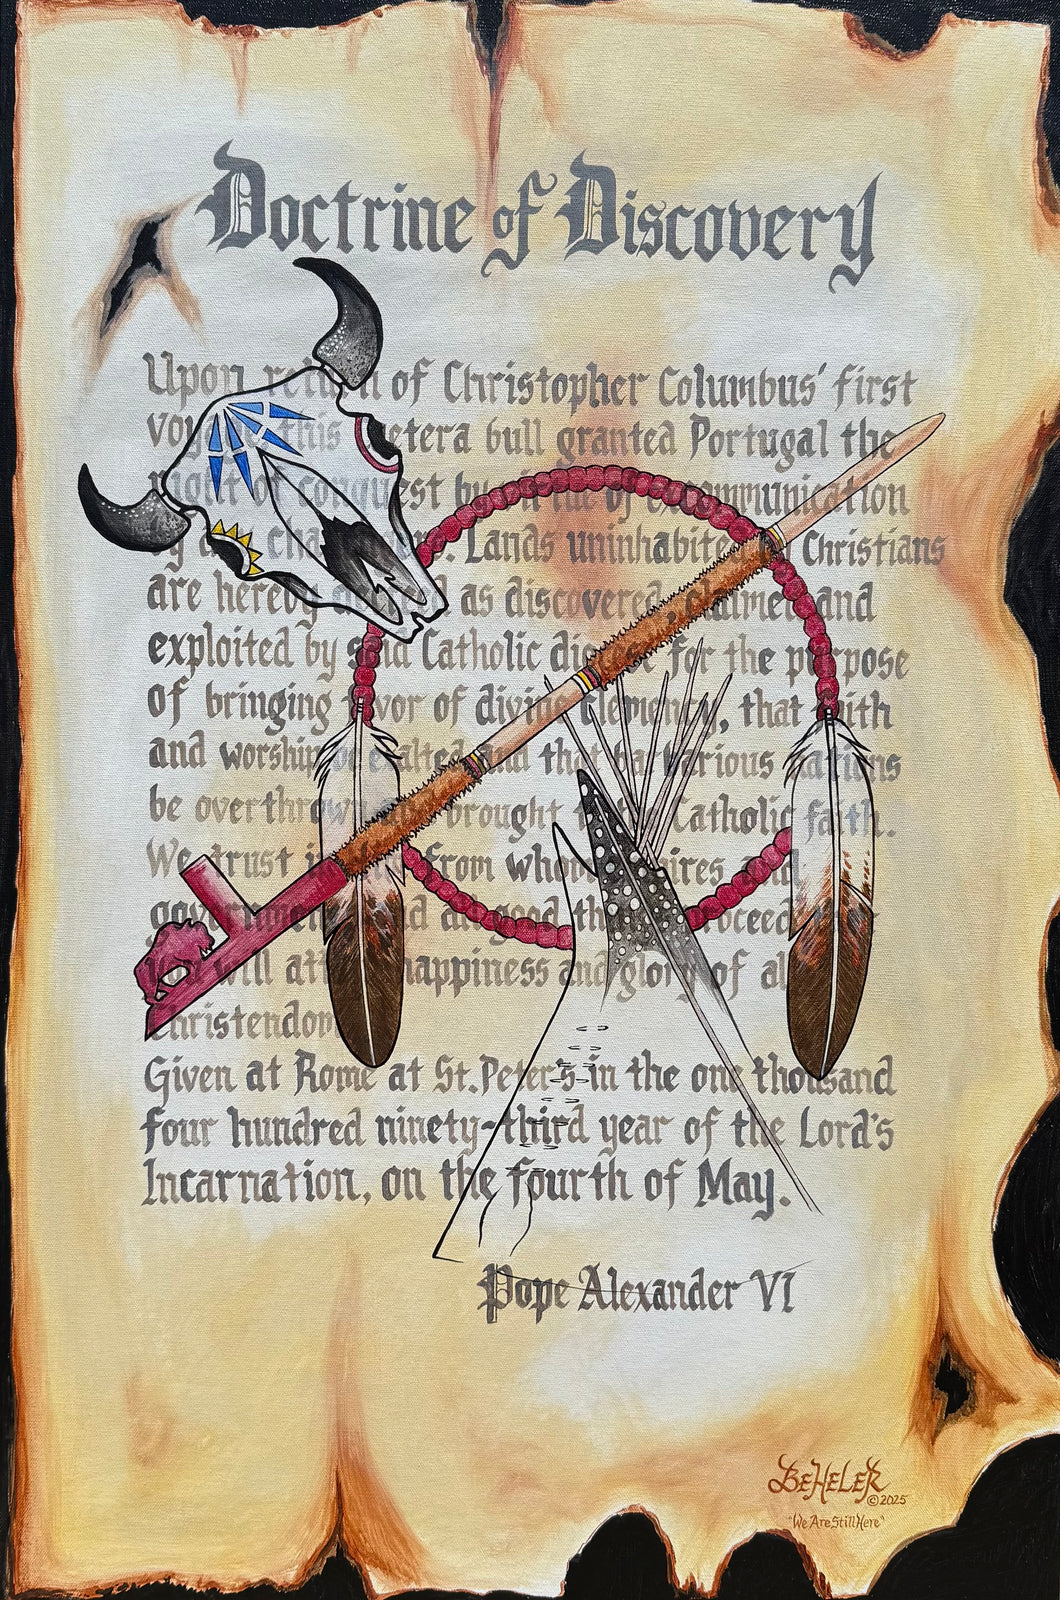 Doctrine of Discovery
Upon return of Christopher Columbus' first
voyage, this cetera bull granted Portugal the
right of conquest by virtue of excommunication
Lands uninhabited by Christians
are hereby as discovered, claimed and
exploited by said Catholic diocese for the purpose
of bringing favor of divine clemency, that faith
and worship be exalted and that barbarious nations
be overthrown and brought to the Catholic faith.
We trust in Him from whom empires and
governments and all good things proceed that
you will attain happiness and glory of all
Christendom.
Given at Rome at St. Peter's in the one thousand
four hundred ninety-third year of the Lord's
Incarnation, on the fourth of May.
Pope Alexander VI
BEHELER
©2025
"We Are Still Here"